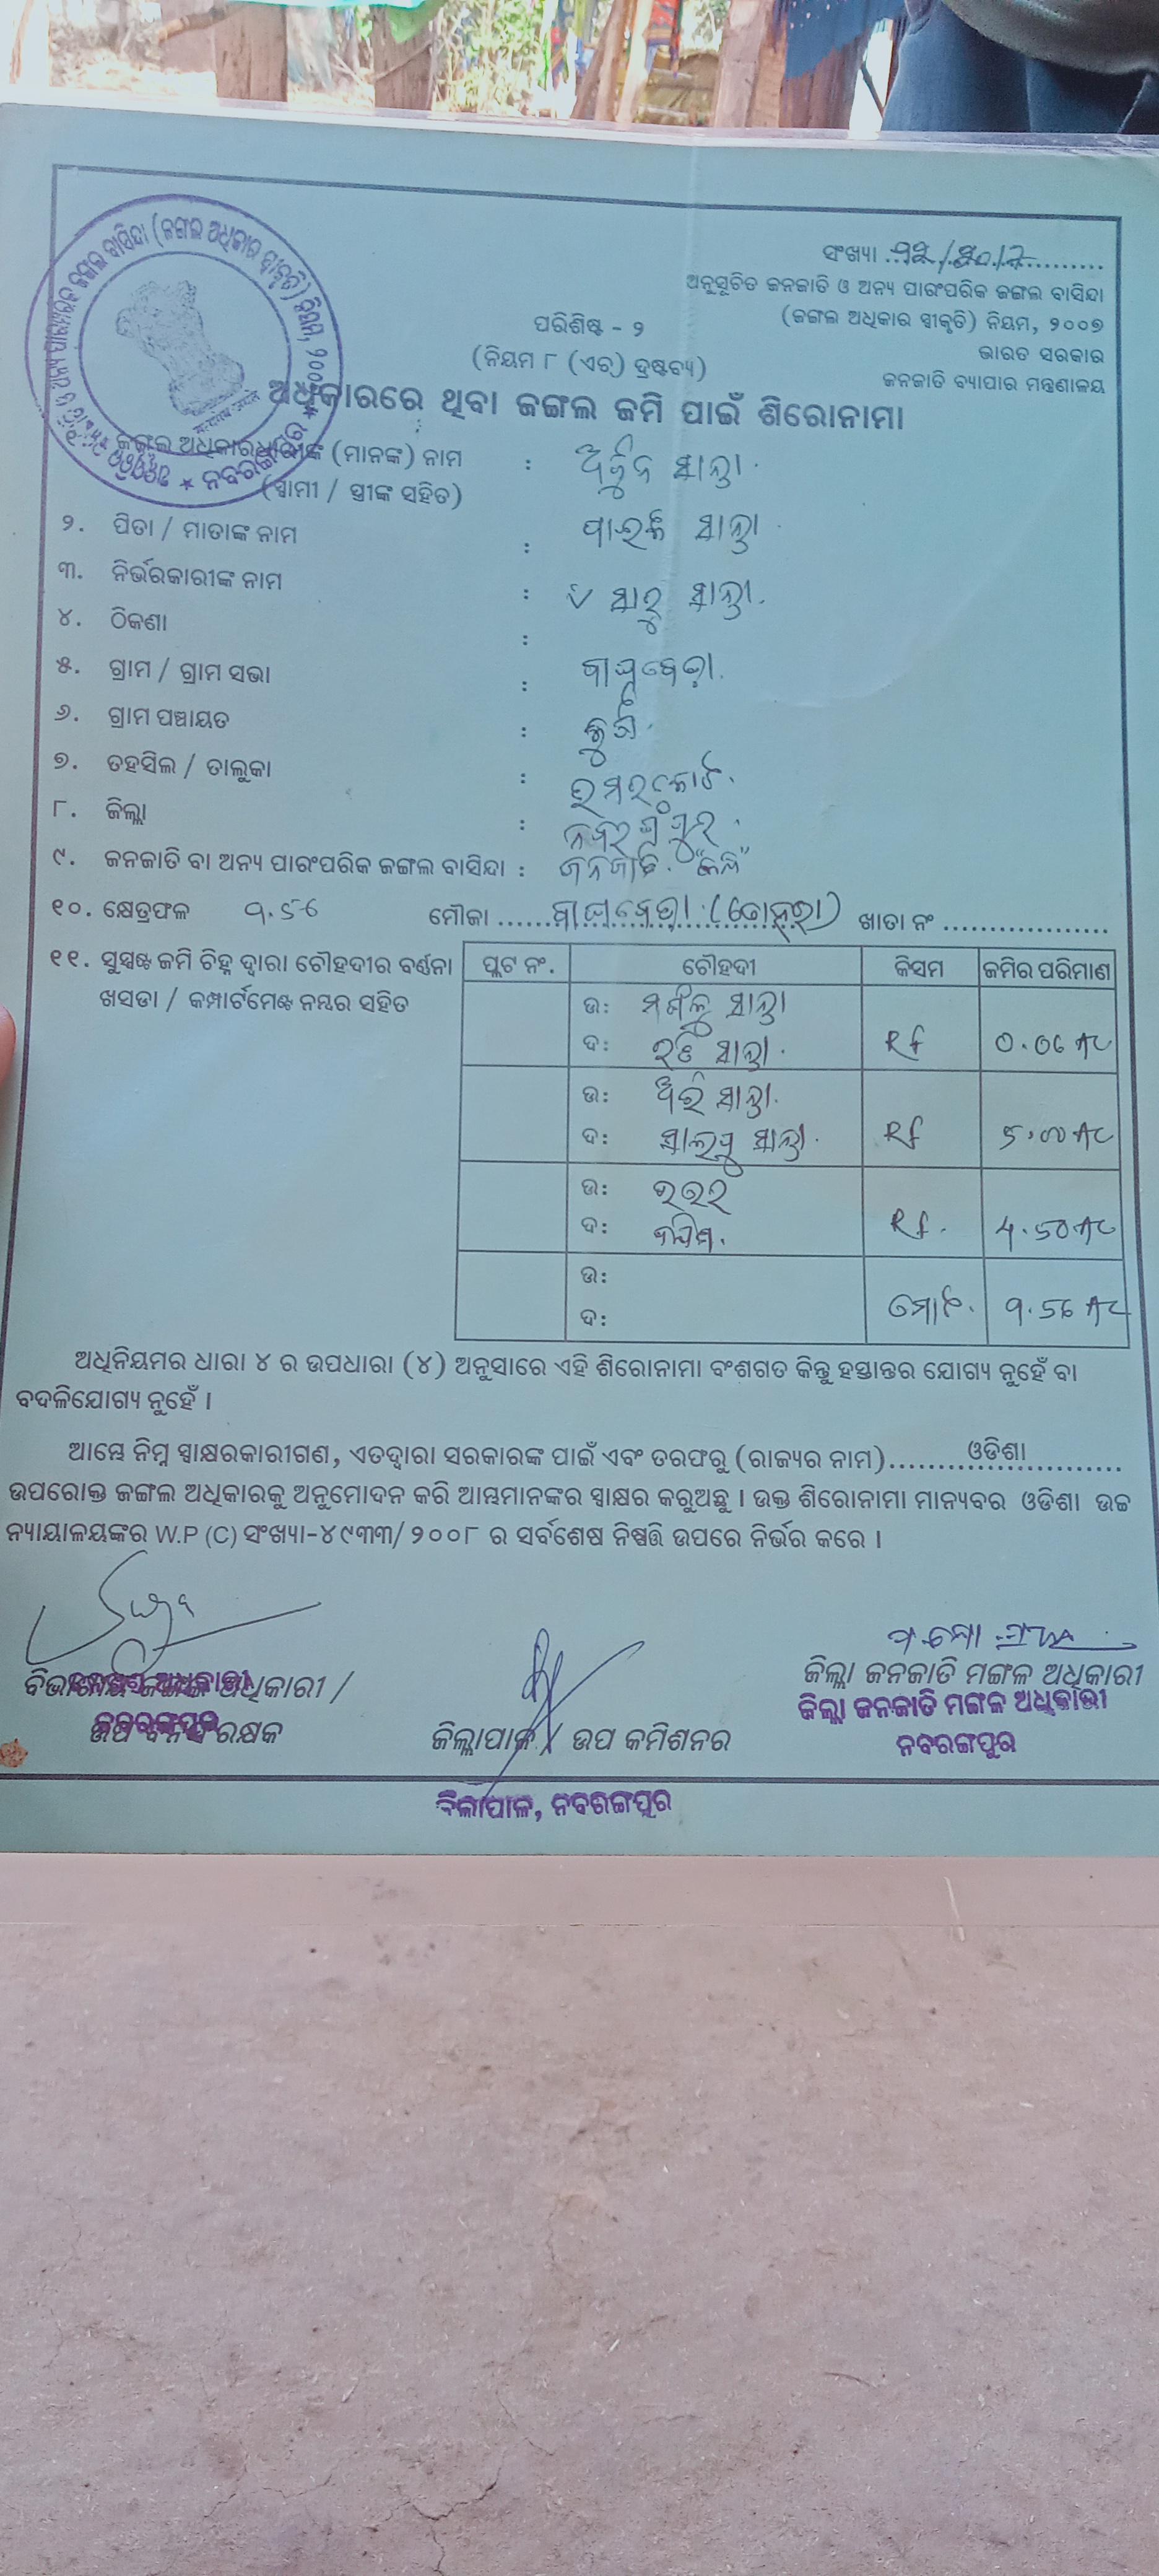 ସଂଖ୍ୟା
ଅନୁସୂଚିତ ଜନଜାତି ଓ ଅନ୍ୟ ପାରଂପରିକ ଜଙ୍ଗଲ ବାସିନ୍ଦା
(ଜଙ୍ଗଲ ଅଧିକାର ସ୍ୱୀକୃତି) ନିୟମ, ୨୦୦୭
ଭାରତ ସରକାର
ଜନଜାତି ବ୍ୟାପାର ମନ୍ତ୍ରଣାଳୟ
ପରିଶିଷ୍ଟ - ୨
(ନିୟମ ୮ (ଏଚ୍) ଦ୍ରଷ୍ଟବ୍ୟ)
ଅଧିକାରରେ ଥିବା ଜଙ୍ଗଲ ଜମି ପାଇଁ ଶିରୋନାମା
ଜଙ୍ଗଲ ଅଧିକାରଧାରୀଙ୍କ (ମାନଙ୍କ) ନାମ : ଅର୍ଜୁନ ସାନ୍ତା
(ସ୍ୱାମୀ / ସ୍ତ୍ରୀଙ୍କ ସହିତ)
୨. ପିତା / ମାତାଙ୍କ ନାମ : ସାନ୍ତା
୩. ନିର୍ଭରକାରୀଙ୍କ ନାମ : ସାନ୍ତା
୪. ଠିକଣା :
୫. ଗ୍ରାମ / ଗ୍ରାମ ସଭା : ବାଘବେଡ଼ା
୬. ଗ୍ରାମ ପଞ୍ଚାୟତ :
୭. ତହସିଲ / ତାଲୁକା : ଉମରକୋଟ
୮. ଜିଲ୍ଲା : ନବରଙ୍ଗପୁର
୯. ଜନଜାତି ବା ଅନ୍ୟ ପାରଂପରିକ ଜଙ୍ଗଲ ବାସିନ୍ଦା : ଜନଜାତି
୧୦. କ୍ଷେତ୍ରଫଳ 9.56 ମୌଜା ବାଘବେଡ଼ା ଖାତା ନଂ
୧୧. ସୁସ୍ପଷ୍ଟ ଜମି ଚିହ୍ନ ଦ୍ୱାରା ଚୌହଦୀର ବର୍ଣ୍ଣନା
ଖସଡା / କମ୍ପାର୍ଟମେଣ୍ଟ ନମ୍ବର ସହିତ
ପ୍ଲଟ ନଂ. ଚୌହଦୀ କିସମ ଜମିର ପରିମାଣ
ଉ: ସାନ୍ତା
ଦ: ସାନ୍ତା Rf 0.06 AC
ଉ: ସାନ୍ତା
ଦ: ସାନ୍ତା Rf 5.00 AC
ଉ:
ଦ: Rf. 4.50 AC
ଉ:
ଦ: ମୋଟ. 9.56 AC
ଅଧିନିୟମର ଧାରା ୪ ର ଉପଧାରା (୪) ଅନୁସାରେ ଏହି ଶିରୋନାମା ବଂଶଗତ କିନ୍ତୁ ହସ୍ତାନ୍ତର ଯୋଗ୍ୟ ନୁହେଁ ବା
ବଦଳିଯୋଗ୍ୟ ନୁହେଁ ।
ଆମ୍ଭେ ନିମ୍ନ ସ୍ୱାକ୍ଷରକାରୀଗଣ, ଏତଦ୍ୱାରା ସରକାରଙ୍କ ପାଇଁ ଏବଂ ତରଫରୁ (ରାଜ୍ୟର ନାମ) ଓଡିଶା
ଉପରୋକ୍ତ ଜଙ୍ଗଲ ଅଧିକାରକୁ ଅନୁମୋଦନ କରି ଆମ୍ଭମାନଙ୍କର ସ୍ୱାକ୍ଷର କରୁଅଛୁ । ଉକ୍ତ ଶିରୋନାମା ମାନ୍ୟବର ଓଡିଶା ଉଚ୍ଚ
ନ୍ୟାୟାଳୟଙ୍କର W.P (C) ସଂଖ୍ୟା-୪୯୩୩/୨୦୦୮ ର ସର୍ବଶେଷ ନିଷ୍ପତ୍ତି ଉପରେ ନିର୍ଭର କରେ ।
ବିଭାଗୀୟ ଜଙ୍ଗଲ ଅଧିକାରୀ /
ଉପ ବନ ସଂରକ୍ଷକ
ନବରଙ୍ଗପୁର
ଜିଲ୍ଲାପାଳ / ଉପ କମିଶନର
ଜିଲ୍ଲାପାଳ, ନବରଙ୍ଗପୁର
ଜିଲ୍ଲା ଜନଜାତି ମଙ୍ଗଳ ଅଧିକାରୀ
ଜିଲ୍ଲା ଜନଜାତି ମଙ୍ଗଳ ଅଧିକାରୀ
ନବରଙ୍ଗପୁର